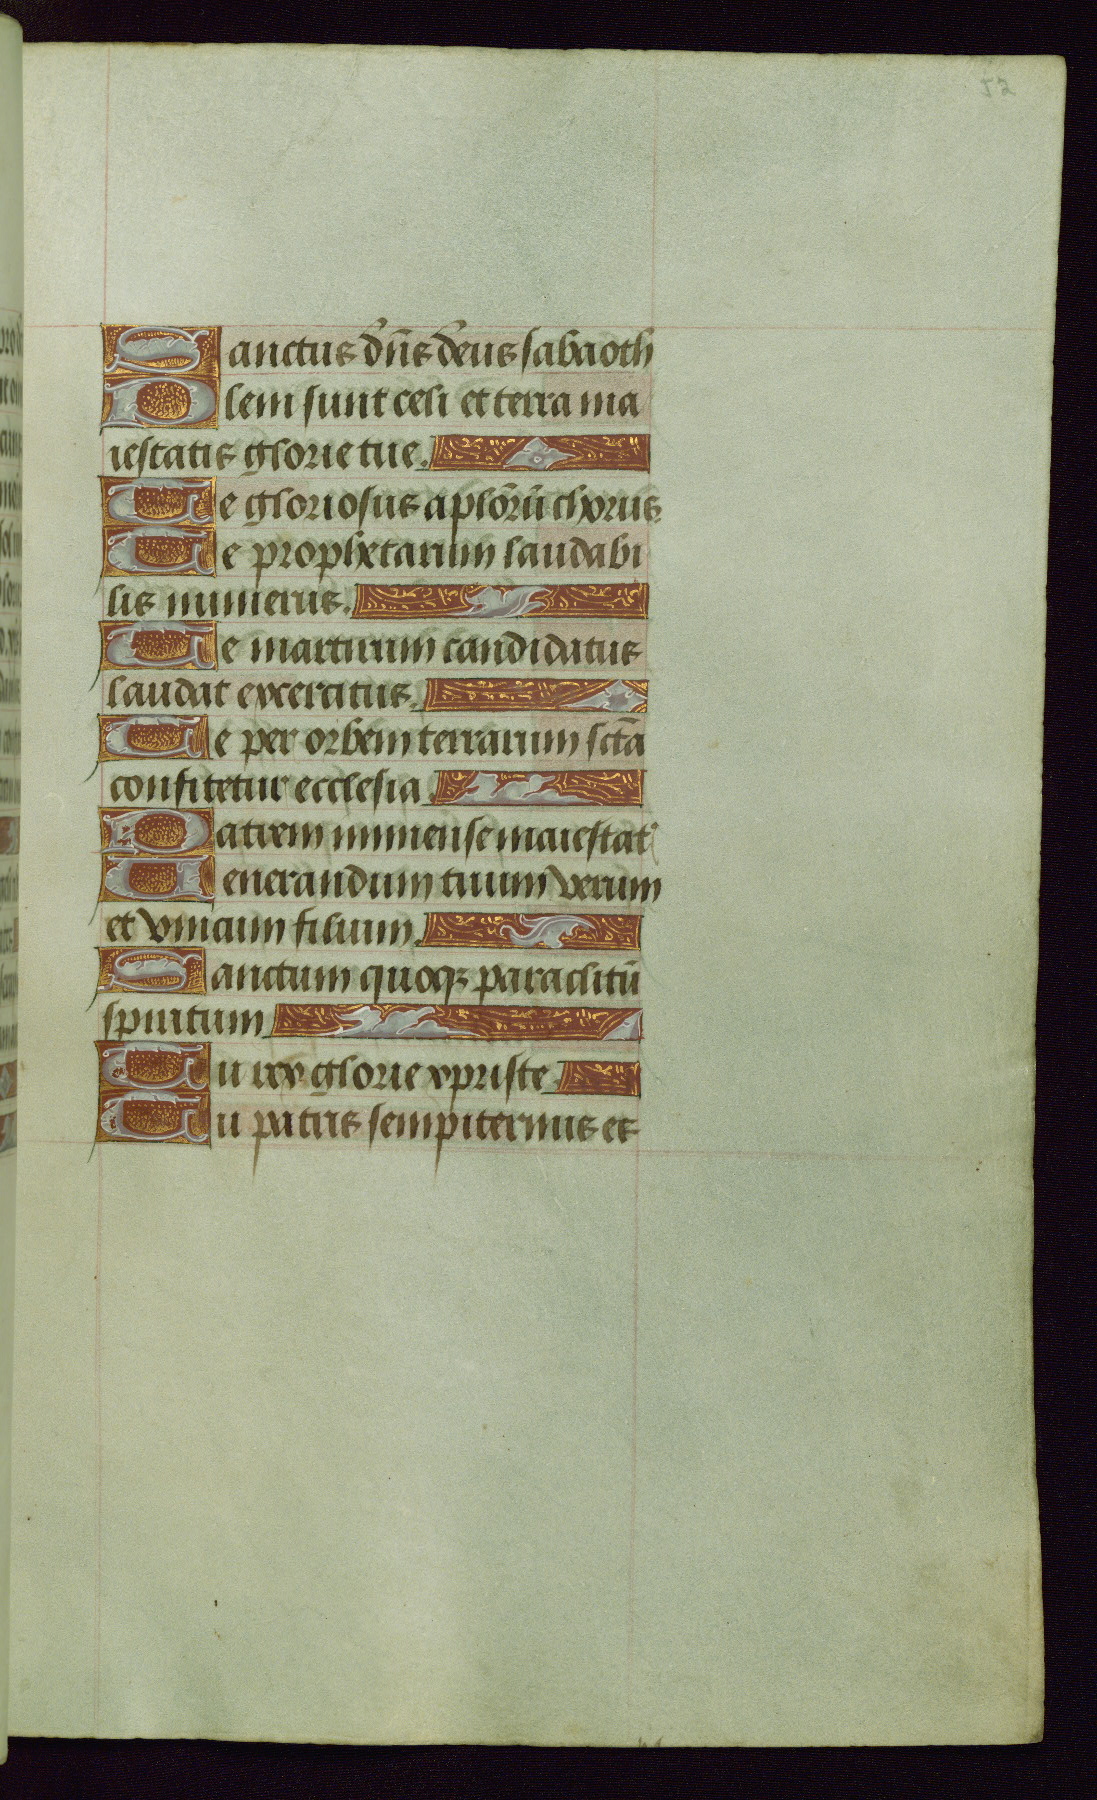 52
Sanctus dn̄s deus sabaoth
Plem sunt celi et terra ma
iestatis glorie tue.
Te gloriosus aplōrū chorus.
Te prophetarum laudabi
lis numerus.
Te martirum candidatus
laudat exercitus.
Te per orbem terrarum sctā
confitetur ecclesia.
Patrem immense maiestat⁹
Uenerandum tuum verum
et vnicum filium.
Sanctum quoqꝫ paraclitū
spiritum
Tu rex glorie xpriste.
Tu patris sempiternus es